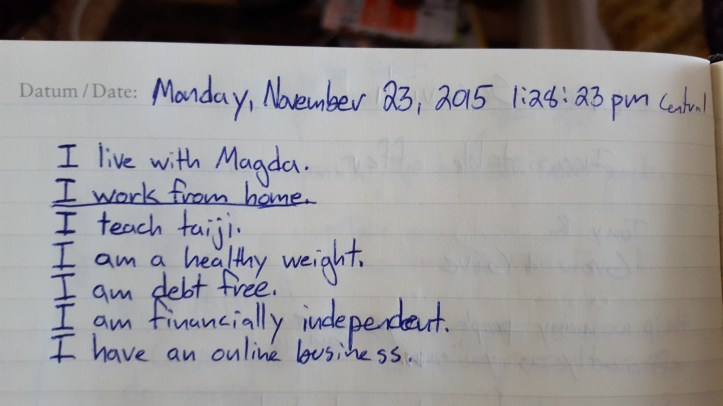 Datum / Date: Monday, November 23, 2015 1:28:23 pm Central
I live with Magda.
I work from home.
I teach taiji.
I am a healthy weight.
I am debt free.
I am financially independent.
I have an online business.